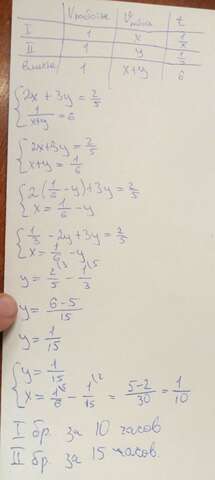 Vработы Vраб t
I 1 x 1/x
II 1 y 1/y
вместе 1 x+y 6
{2x + 3y = 2/5
1/(x+y) = 6
{2x+3y = 2/5
x+y = 1/6
{2(1/6 - y)+3y = 2/5
x = 1/6 - y
{1/3 - 2y + 3y = 2/5
x = 1/6 - y
y = 2/5 - 1/3
y = (6-5)/15
y = 1/15
{y = 1/15
x = 1/6 - 1/15 = (5-2)/30 = 1/10
I бр. за 10 часов
II бр. за 15 часов.